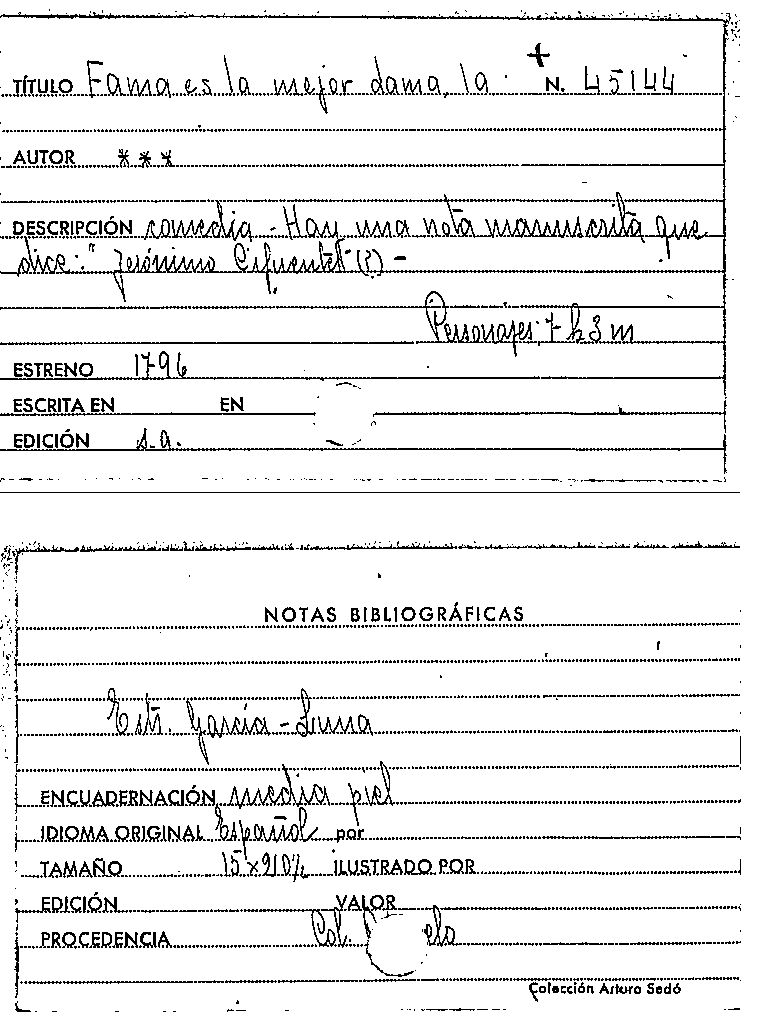 TÍTULO Fama es la mejor dama, la. + N. 45144
AUTOR * * *
DESCRIPCIÓN comedia - Hay una nota manuscrita que
dice: "Jerónimo Cifuentes" (?) -
Personajes: 7 h 3 m
ESTRENO 1796
ESCRITA EN EN
EDICIÓN s.a.
NOTAS BIBLIOGRÁFICAS
Estr. García-Luna
ENCUADERNACIÓN media piel
IDIOMA ORIGINAL Español por
TAMAÑO ILUSTRADO POR
EDICIÓN VALOR
PROCEDENCIA Col.
Colección Arturo Sedó